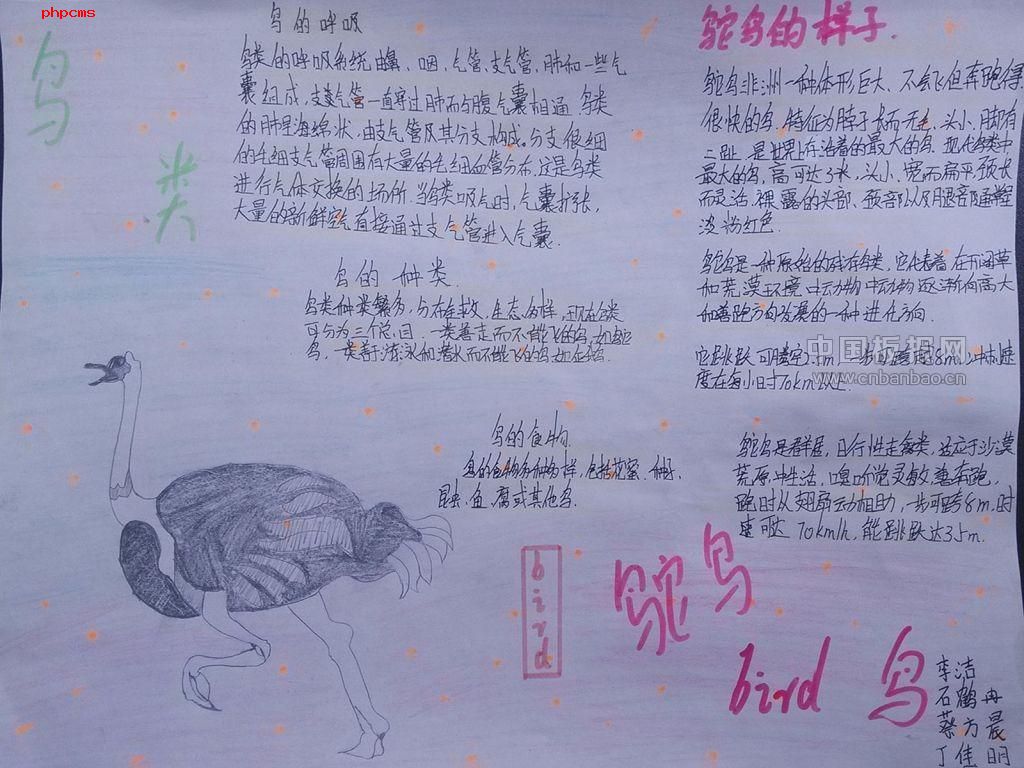 phpcms
鸟类
鸟的呼吸
鸟类的呼吸系统由鼻、咽、气管、支气管、肺和一些气
囊组成,支气管一直穿过肺而与腹气囊相通.鸟类
的肺呈海绵状,由支气管及其分支构成.分支很细
的毛细支气管周围有大量的毛细血管分布,这是鸟类
进行气体交换的场所.当鸟类吸气时,气囊扩张,
大量的新鲜空气直接通过支气管进入气囊.
鸟的种类
鸟类种类繁多,分布全球,生态多样,现在鸟类
可分为三个总目.一类善走而不能飞的鸟,如鸵
鸟,一类善游泳和潜水而不能飞的鸟如企鹅.
鸟的食物
鸟的食物多种多样,包括花蜜、种子、
昆虫、鱼、腐或其他鸟.
鸵鸟的样子.
鸵鸟非洲一种体形巨大、不会飞但奔跑得
很快的鸟,特征为脖子长而无毛、头小、脚有
二趾.是世界上存活着的最大的鸟.现代鸟类中
最大的鸟,高可达3米,头小、宽而扁平,颈长
而灵活,裸露的头部、颈部以及腿部通常呈
淡粉红色.
鸵鸟是一种原始的残存鸟类,它代表着在开阔草
和荒漠环境中动物逐渐向高大
和善跑方向发展的一种进化方向.
中国板报网
www.cnbanbao.cn
它跳跃可腾空2.5m,一步可跨越8m,冲刺速
度在每小时70km以上
鸵鸟是群居,日行性走禽类,适应于沙漠
荒原中生活,嗅听觉灵敏,善奔跑,
跑时以翅扇动相助,一步可跨8m.时
速可达70km/h,能跳跃达3.5m.
bird
鸵鸟
bird 鸟
李洁
石鹤冉
蔡方晨
丁佳明